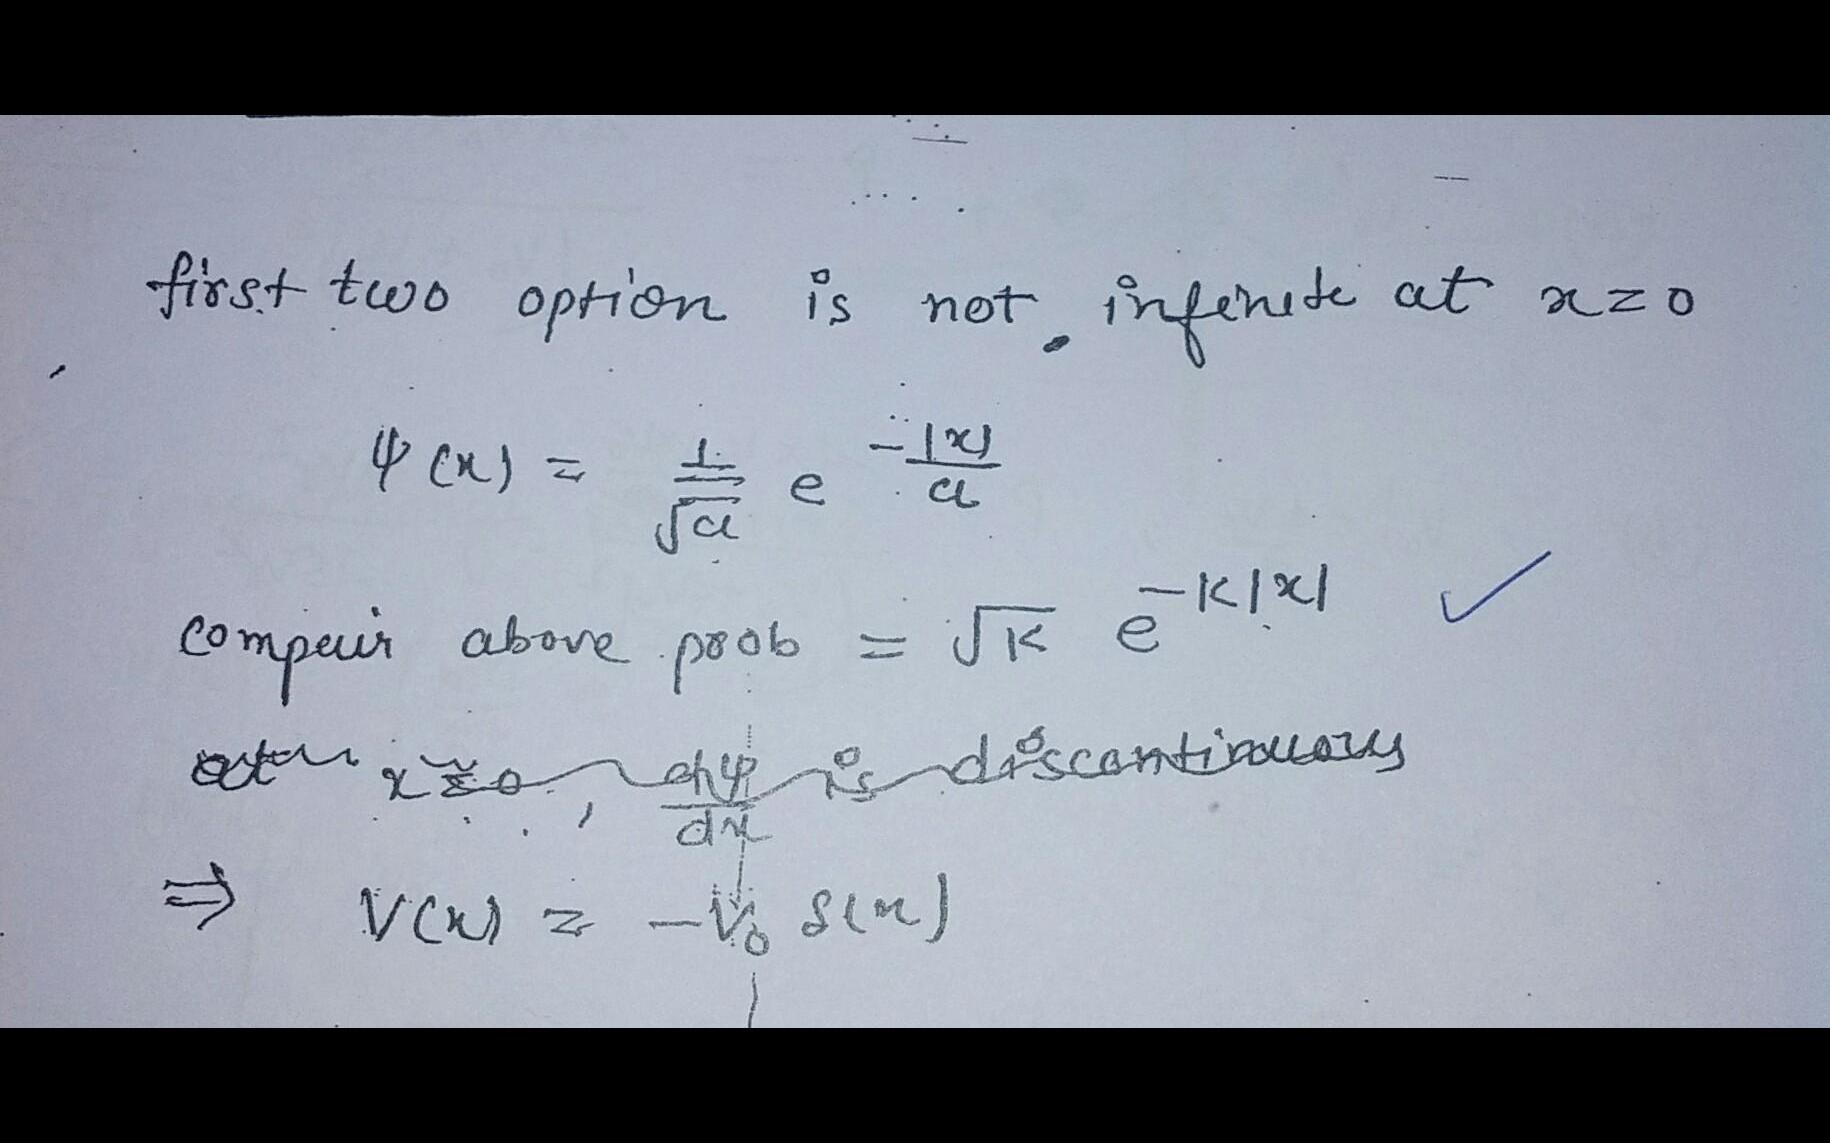 first two option is not infinite at x=0
ψ(x) = 1/√a e^(-|x|/a)
compair above prob = √K e^(-K|x|) ✓
at x=0, dψ/dx is discontinuous
⇒ V(x) = -V₀ δ(x)